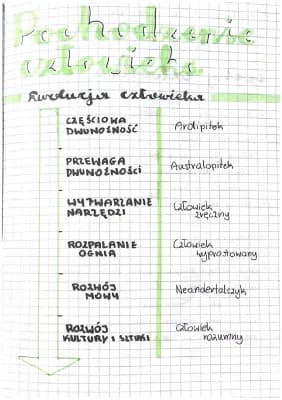 Pochodzenie
człowieka
Ewolucja człowieka
CZĘŚCIOWA
DWUNOŻNOŚĆ
Ardipitek
PRZEWAGA
DWUNOŻNOŚCI
Australopitek
WYTWARZANIE
NARZĘDZI
Człowiek
zręczny
ROZPALANIE
OGNIA
Człowiek
wyprostowany
ROZWÓJ
MOWY
Neandertalczyk
ROZWÓJ
KULTURY I SZTUKI
Człowiek
rozumny